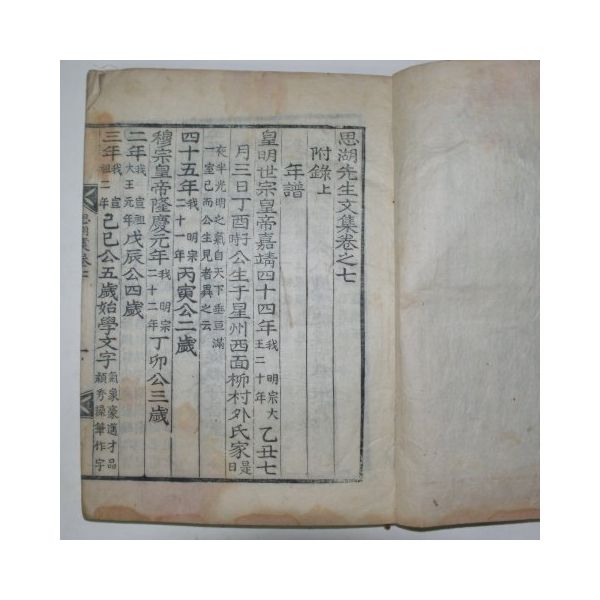 思湖先生文集卷之七
附錄上
年譜
皇明世宗皇帝嘉靖四十四年我 明宗大王二十年乙丑七
月三日丁酉時公生于星州西面柳村外氏家是日
夜半光明之氣自天下垂亘滿一室已而公生見者異之云
四十五年我 明宗二十一年丙寅公二歲
穆宗皇帝隆慶元年我 明宗二十二年丁卯公三歲
二年我 宣祖大王元年戊辰公四歲
三年我 宣祖二年己巳公五歲始學文字氣象豪邁才品穎秀操筆作字
思湖集卷七 一